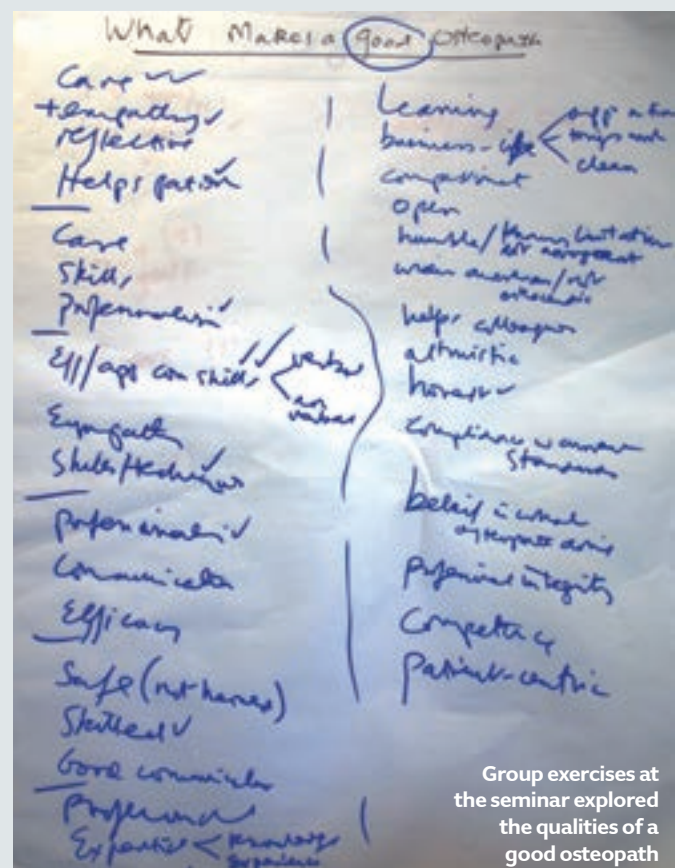 What Makes a good Osteopath
Care ✓✓
+ empathy ✓
reflective
Helps patient ✓
Care
Skills
Professionalism ✓
Eff/app com skills ✓✓ < verbal
non verbal
Empathy
Skills/techniques ✓
professionalism ✓
Communication
Efficacy
Safe (not harmed)
Skilled ✓
Good communicator
Professional
Expertise < knowledge
experience
Learning
business-like <
clean
compassionate
open
humble/known limitation
not arrogant
helps colleagues
altruistic
honest ✓
compliance w
standards
belief in
professional integrity
Competence
Patient-centric
Group exercises at
the seminar explored
the qualities of a
good osteopath